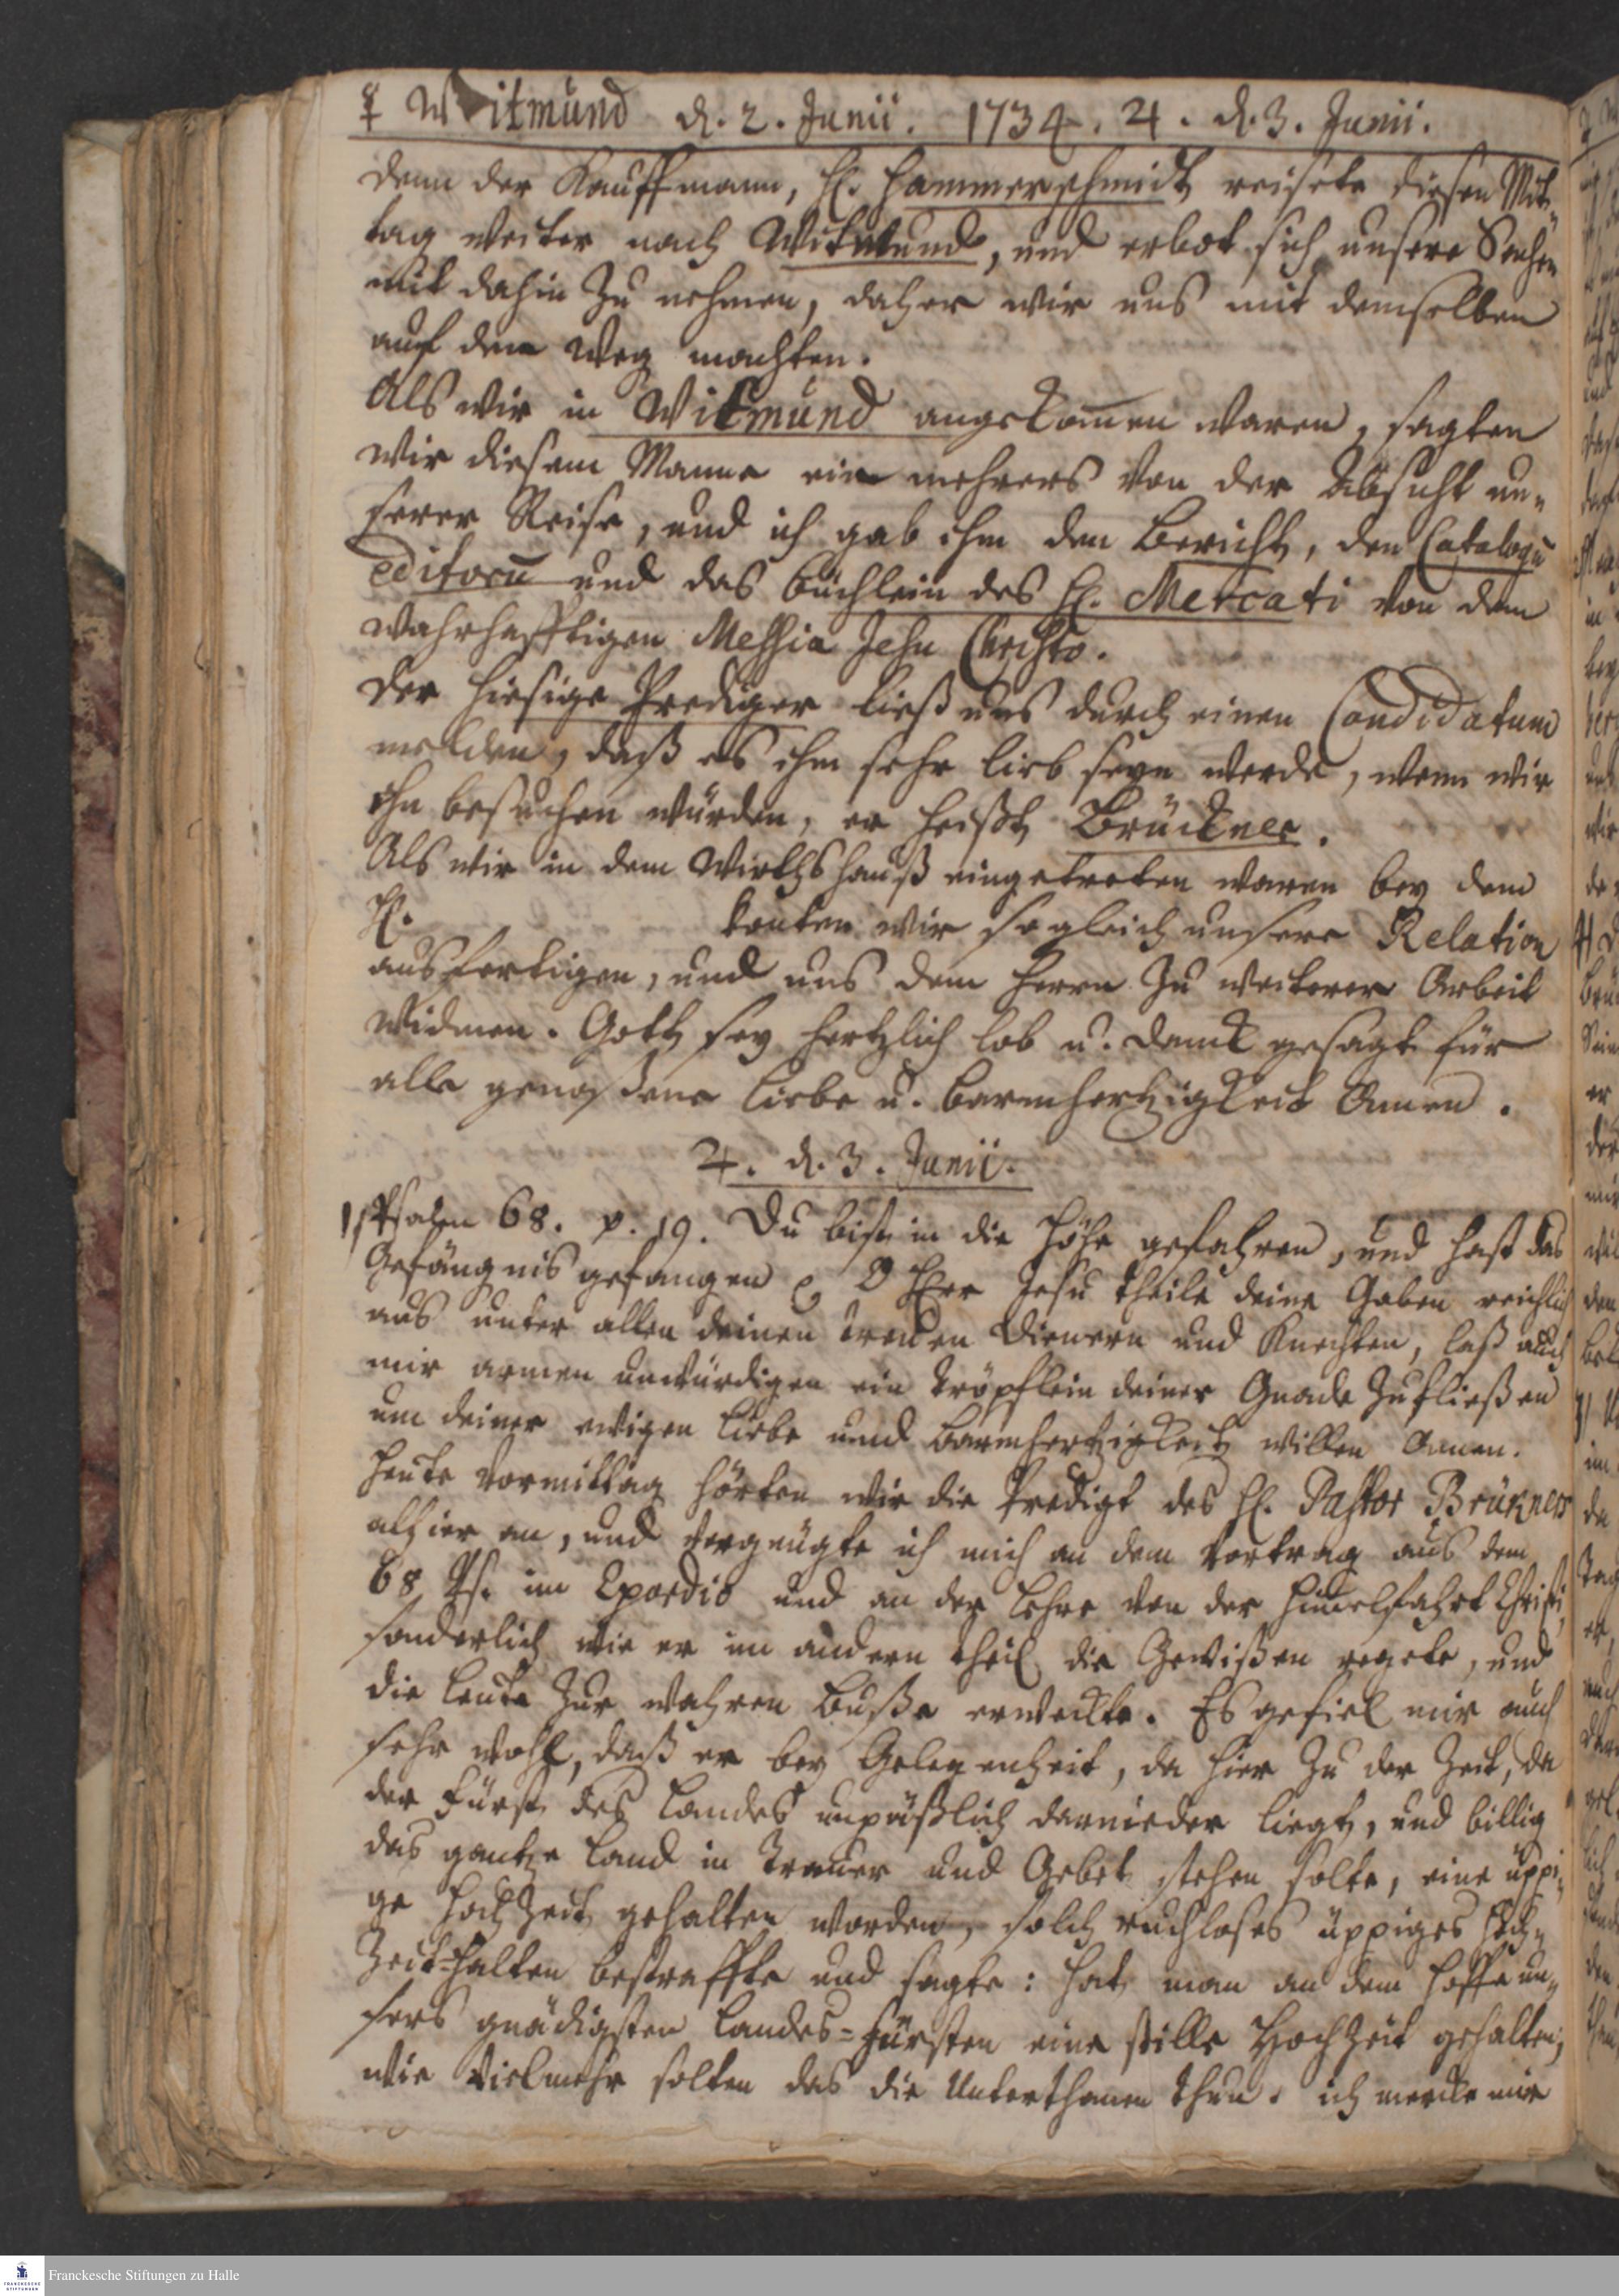 ☿ Witmund d. 2. Junii. 1734. ♃. d. 3. Junii.
denn der Kauffmann, H. Hammerschmidt reisete diesen Mit-
tag weiter nach Witmund, und erbot sich unsere Sachen
mit dahin zu nehmen, daher wir uns mit demselben
auf den Weg machten.
Als wir in Witmund angekommen waren, sagten
wir diesem Manne ein mehrers von der Absicht un-
serer Reise, und ich gab ihm den Bericht, den Catalogū
editorū und das büchlein des H. Mercati von dem
wahrhafftigen Messia Jesu Christo.
Der hiesige Prediger ließ uns durch einen Candidatum
melden, daß es ihm sehr lieb seyn werde, wenn wir
ihn besuchen würden, er heißt Brückner.
Als wir in dem Wirthshauß eingetreten waren bey dem
H. konten wir sogleich unsere Relation
ausfertigen, und uns dem Herrn zu weiterer Arbeit
widmen. Gott sey hertzlich lob u. danck gesagt für
alle genoßene Liebe u. Barmhertzigkeit Amen.
♃. d. 3. Junii.
1) Psalm 68. v. 19. Du bist in die Höhe gefahren, und hast das
Gefängnis gefangen O HErr Jesu theile deine Gaben reichlich
aus unter allen deinen treuen Dienern und Knechten, laß auch
mir armen unwürdigen ein Tröpflein deiner Gnade zufließen
um deiner ewigen Liebe und Barmhertzigkeit willen Amen.
Heute Vormittag hörten wir die Predigt des H. Pastor Brükners
alhier an, und vergnügte ich mich an dem Vortrag aus dem
68 Ps. im Exordio und an der Lehre von der Himelfahrt Christi,
sonderlich wie er im andern theil die Gewißen regete, und
die Leute zur wahren Buße erweckte. Es gefiel mir auch
sehr wohl, daß er bey Gelegenheit, da hier zu der Zeit, da
der Fürst des Landes unpäßlich darnieder liegt, und billig
das gantze Land in Trauer und Gebet stehen solte, eine üppi-
ge Hochzeit gehalten worden, solch ruchloses üppiges Hoch-
zeit-halten bestraffte und sagte: hat man an dem Hoffe un-
sers gnädigsten Landes-Fürsten eine stille Hochzeit gehalten,
wie vielmehr solten das die Unterthanen thun. ich merckte mir
Franckesche Stiftungen zu Halle